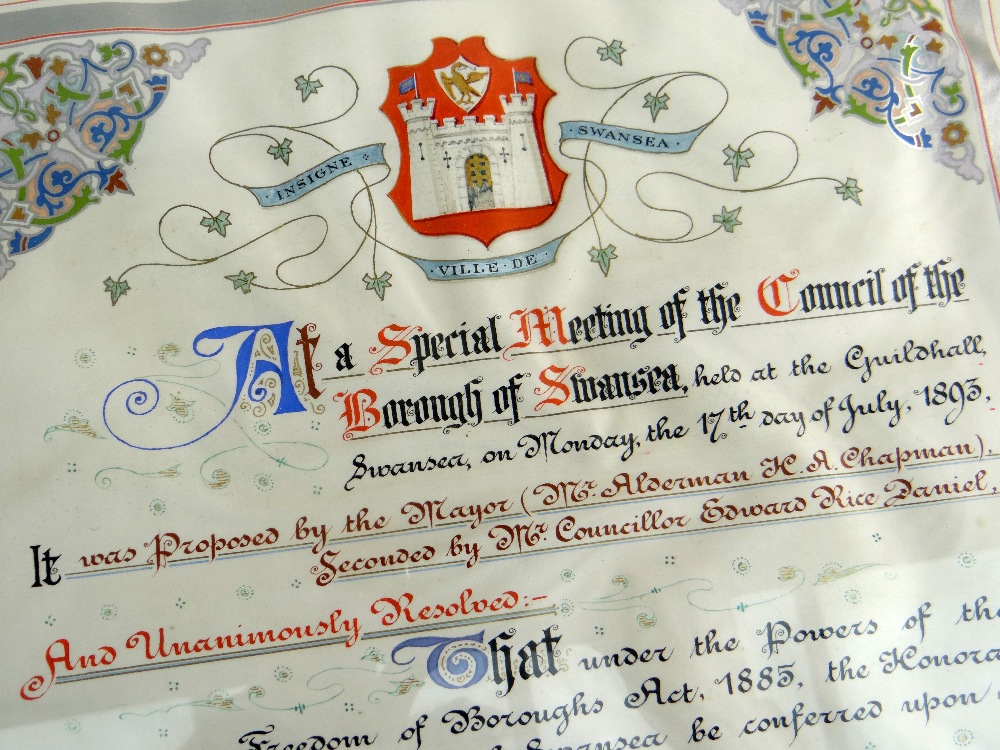 INSIGNE
SWANSEA
VILLE · DE
At a Special Meeting of the Council of the
Borough of Swansea, held at the Guildhall,
Swansea, on Monday, the 17th day of July, 1893,
It was Proposed by the Mayor (Mr. Alderman H. A. Chapman),
Seconded by Mr. Councillor Edward Rice Daniel,
And Unanimously Resolved:-
That under the Powers of the
Freedom of Boroughs Act, 1885, the Honora
Swansea be conferred upon